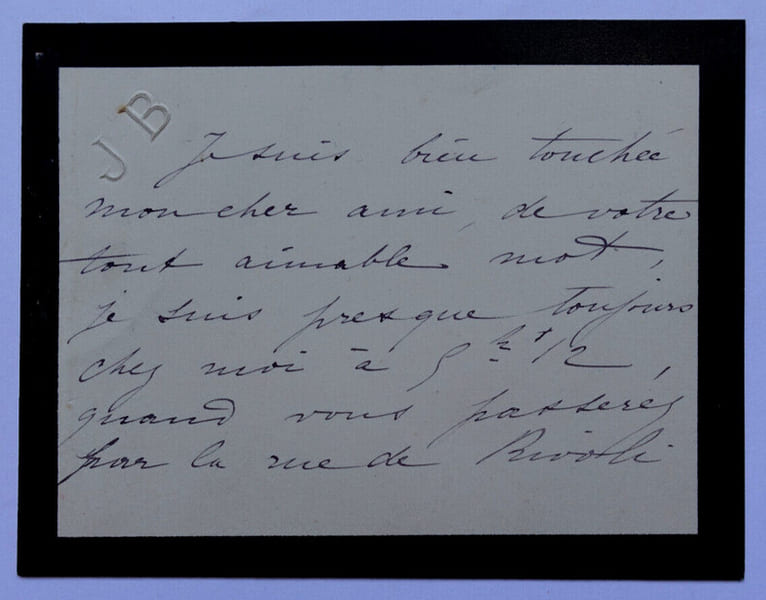 JB
Je suis bien touchée
mon cher ami, de votre
tout aimable mot,
je suis presque toujours
chez moi à 5 h 1/2,
quand vous passerez
par la rue de Rivoli